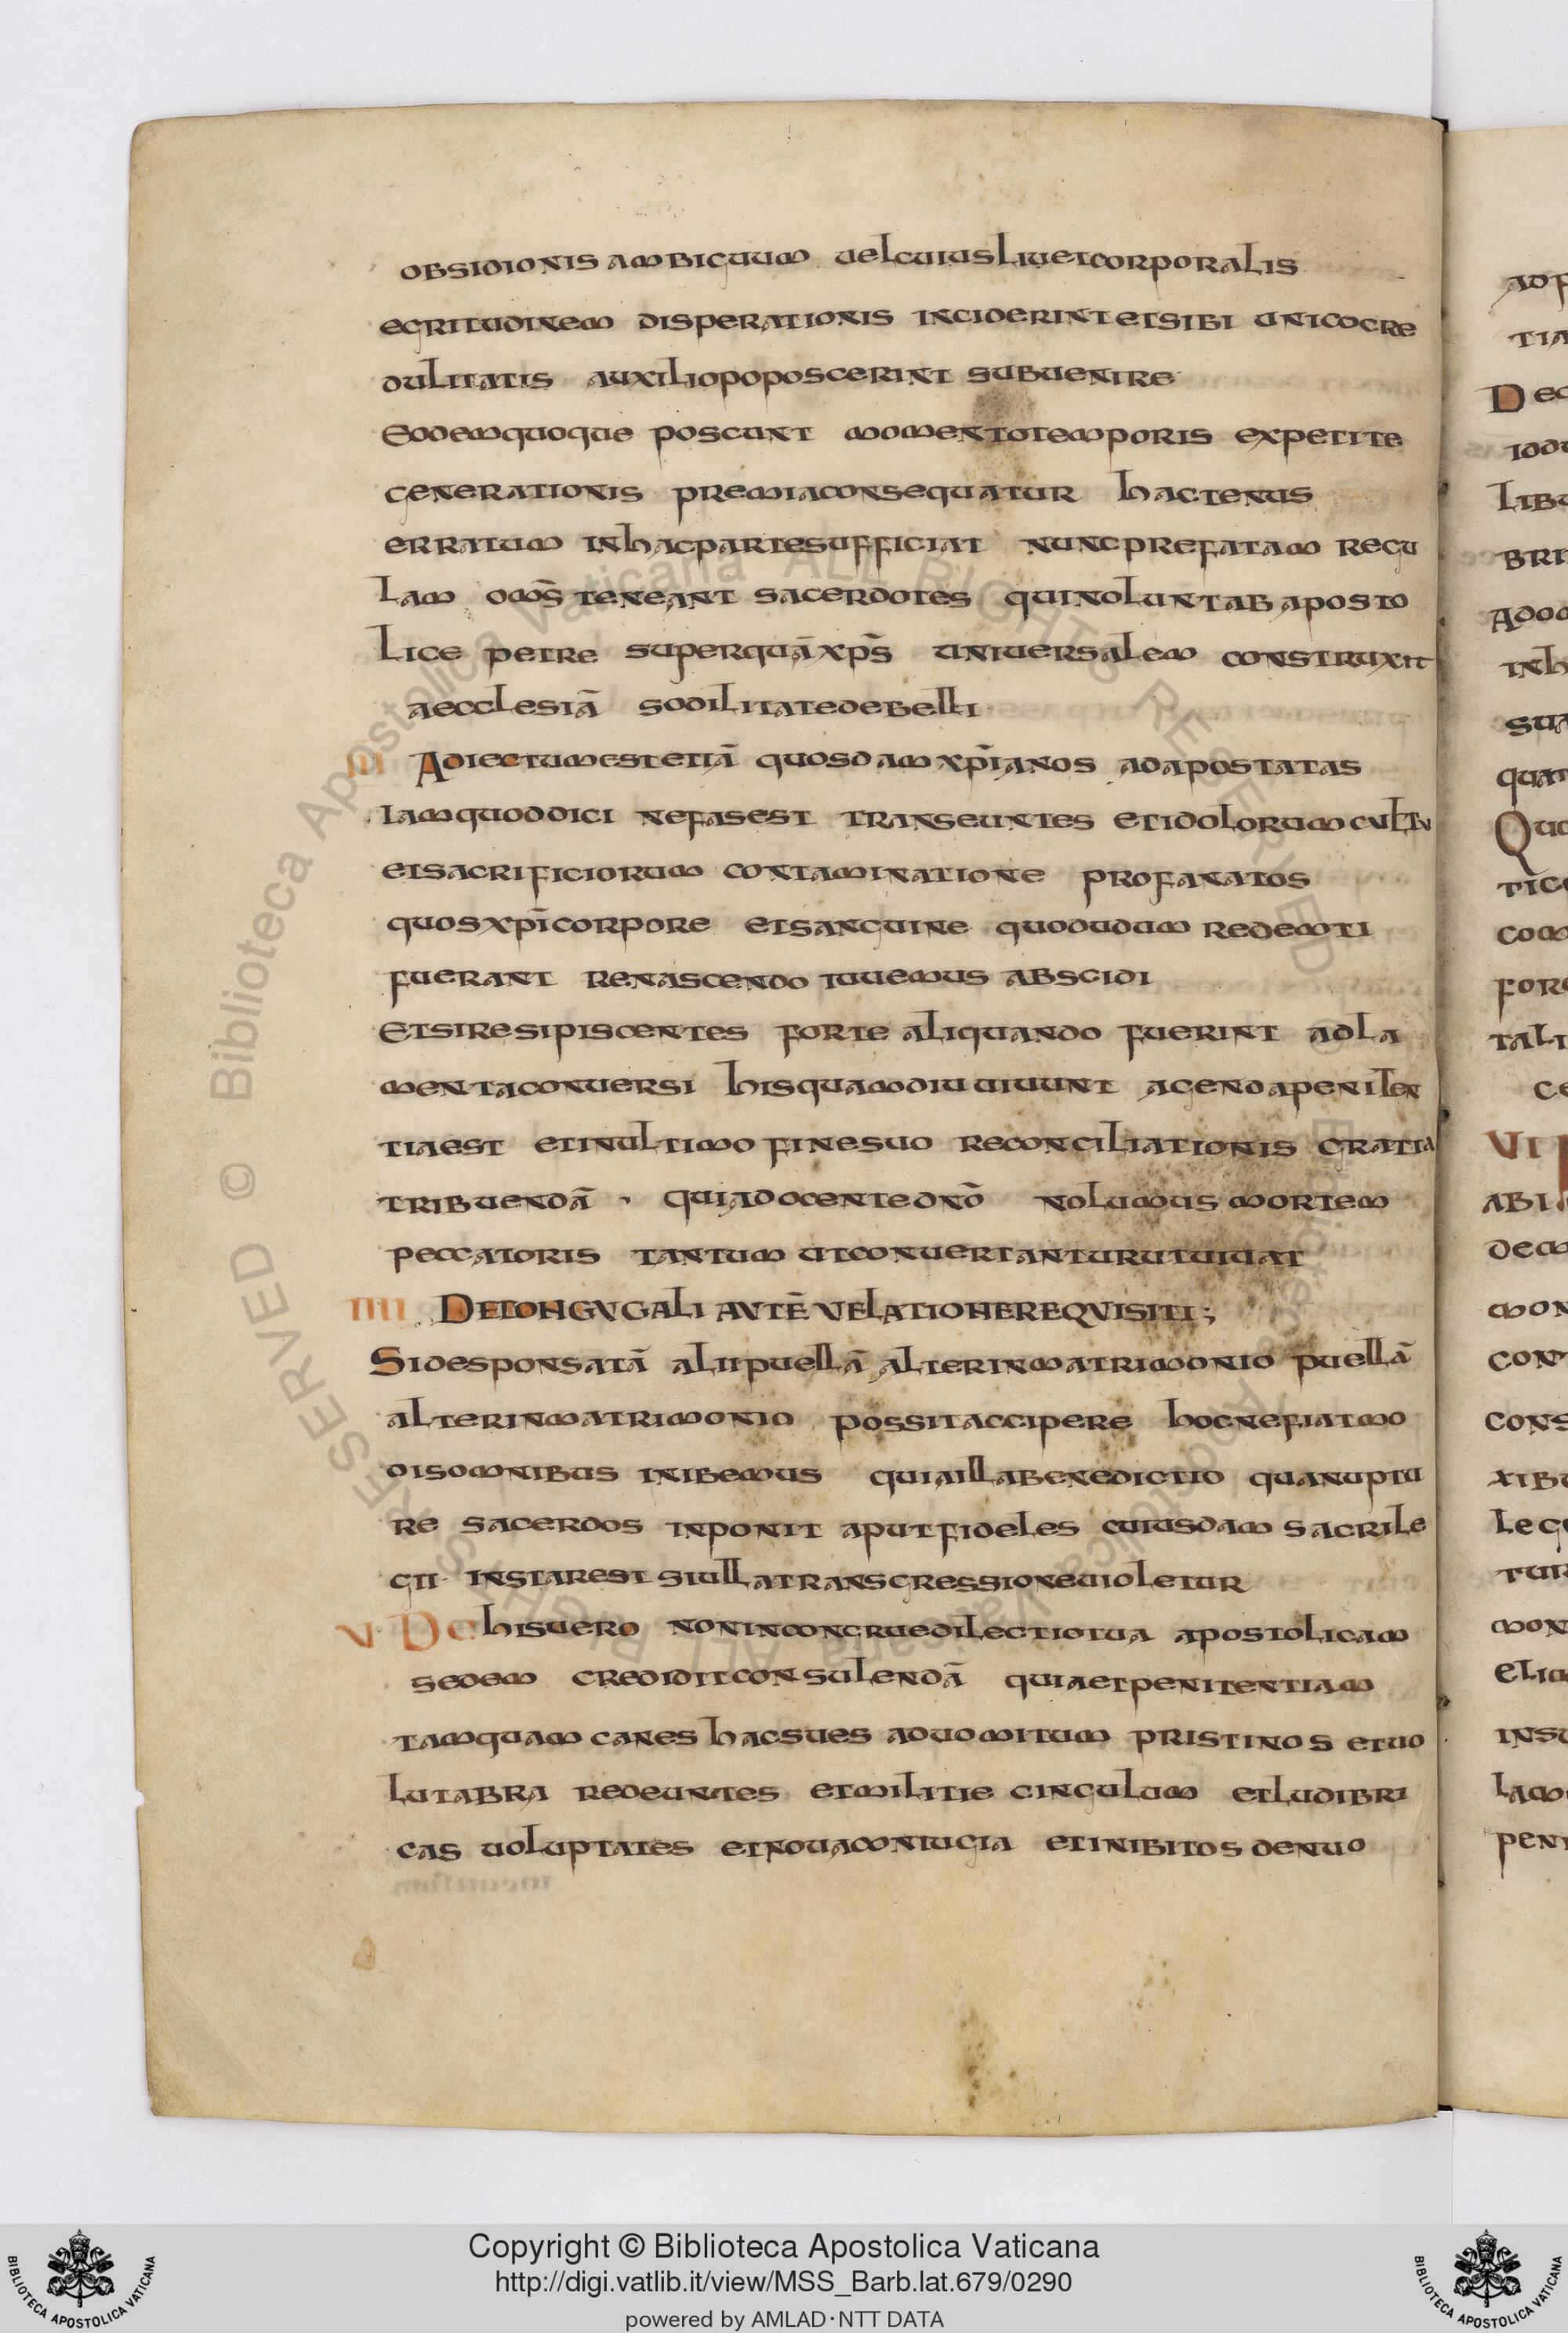 obsidionis ambiguum uel cuius liuet corporalis
egritudinem disperationis inciderint et sibi unico cre
dulitatis auxilio poposcerint subuenire
Eodemquoque poscunt momento temporis expetite
generationis premia consequatur hactenus
erratum in hac parte sufficiat nunc prefatam regu
lam om̄s teneant sacerdotes qui nolunt ab aposto
lice petre super quā xp̄s uniuersalem construxit
aecclesiā sodilitate debelli
III Adiectum est etiā quosdam xp̄ianos ad apostatas
iam quod dici nefas est transeuntes et idolorum cultu
et sacrificiorum contaminatione profanatos
quos xp̄i corpore et sanguine quo dudum redemti
fuerant renascendo iuuemus abscidi
Et si resipiscentes forte aliquando fuerint ad la
menta conuersi his quamdiu uiuunt agenda peniten
tia est et in ultimo fine suo reconciliationis gratia
tribuendā · quia docente dn̄o nolumus mortem
peccatoris tantum ut conuertantur ut uiuat
IIII DE CONGVGALI AVTĒ VELATIONE REQVISITI;
Si desponsatā alii puellā alter in matrimonio puellā
alter in matrimonio possit accipere hoc ne fiat mo
dis omnibus inibemus quia illa benedictio qua nuptu
re sacerdos inponit aput fideles cuiusdam sacrile
gii instar est si ulla transgressione uioletur
V De his uero non incongrue dilectio tua apostolicam
sedem credidit consulendā quia et penitentiam
tamquam canes hac sues ad uomitum pristinos et uo
lutabra redeuntes et militie cingulum et ludibri
cas uoluptates et noua coniugia et inibitos denuo
Copyright © Biblioteca Apostolica Vaticana
http://digi.vatlib.it/view/MSS_Barb.lat.679/0290
powered by AMLAD·NTT DATA
BIBLIOTECA APOSTOLICA VATICANA
BIBLIOTECA APOSTOLICA VATICANA